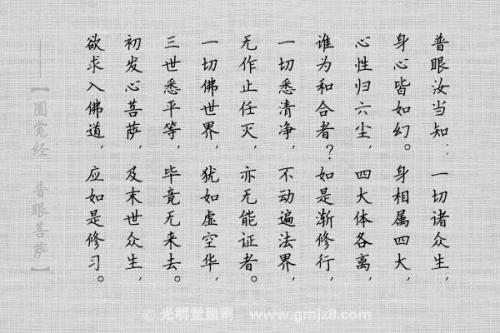 普眼汝当知：一切诸众生，
身心皆如幻。身相属四大，
心性归六尘，四大体各离，
谁为和合者？如是渐修行，
一切悉清净，不动遍法界，
无作止任灭，亦无能证者。
一切佛世界，犹如虚空华，
三世悉平等，毕竟无来去。
初发心菩萨，及末世众生，
欲求入佛道，应如是修习。
——【圓覚经 普眼菩萨】
© 光明 www.gmjz8.com